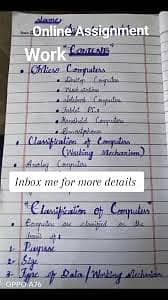 Online Assignment
Work
"Contents"
Micro Computers
Desktop Computer
Work station
Notebook Computer
Tablet PCs
Handheld Computers
Smartphones
Classification of Computers
(Working Mechanism)
Analog Computers
Inbox me for more details
"Classification of Computers
Computers are classified on the
basis of :
1- Purpose
2- Size
3- Type of Data / Working Mechanism
OPPO A76